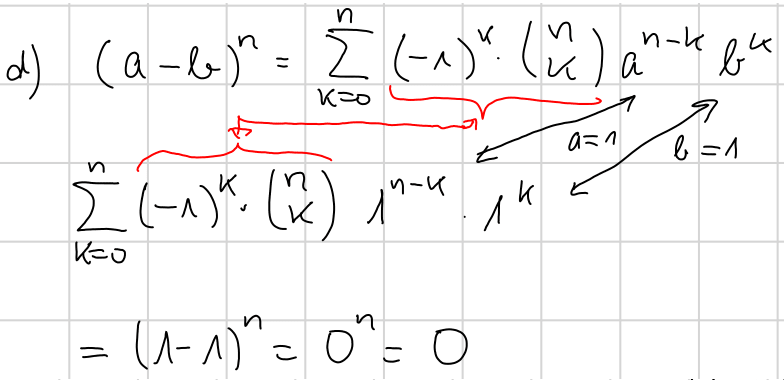 d) (a-b)^n = \sum_{k=0}^{n} (-1)^k \cdot \binom{n}{k} a^{n-k} b^k
a=1 b=1
\sum_{k=0}^{n} (-1)^k \cdot \binom{n}{k} 1^{n-k} \cdot 1^k
= (1-1)^n = 0^n = 0